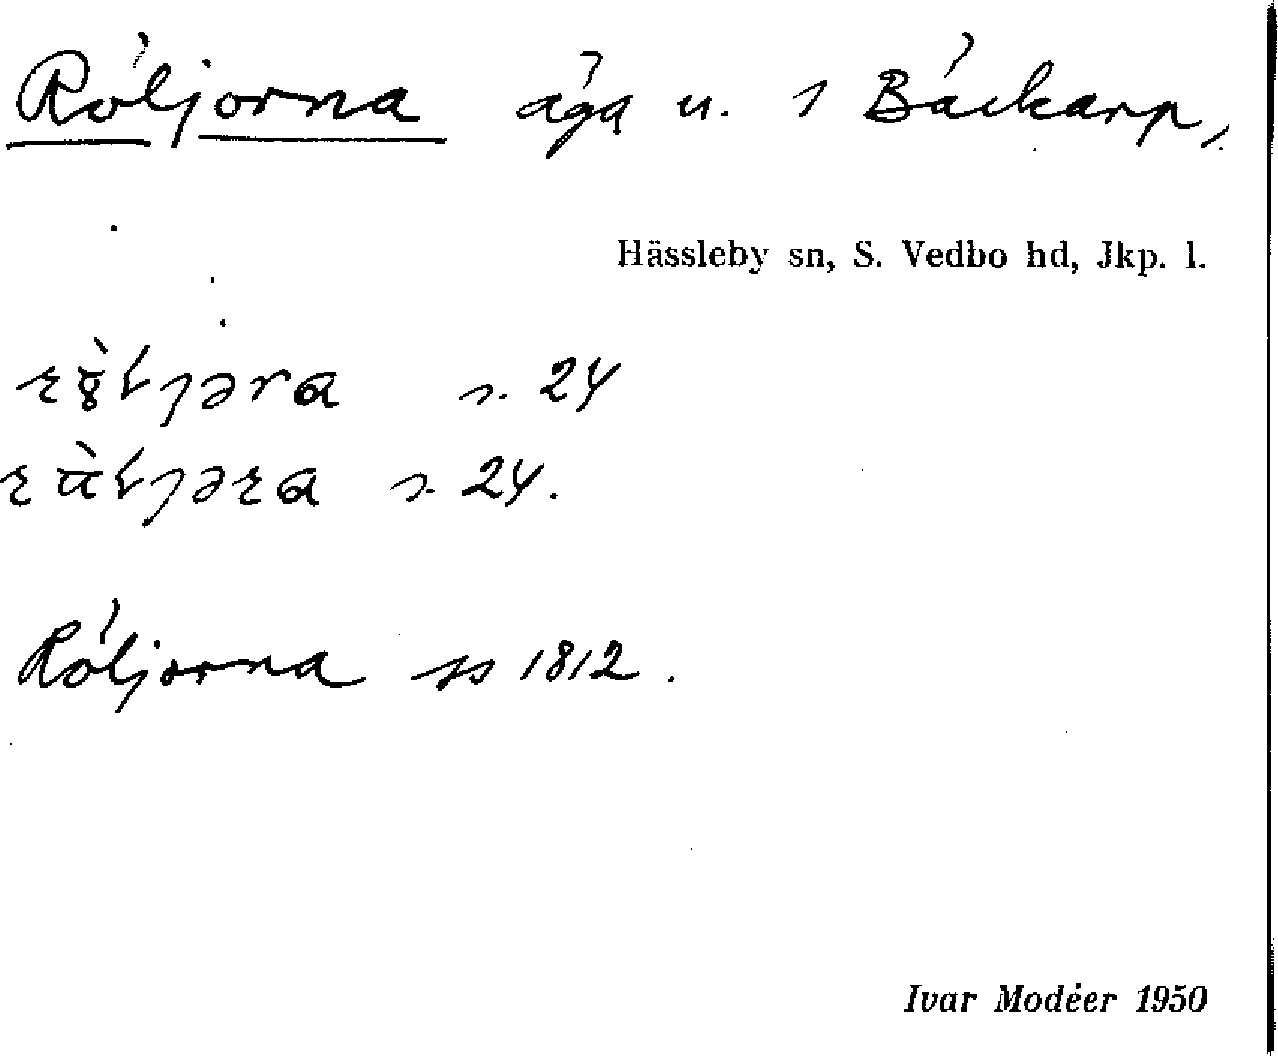 Röljorna äga u. s Bäckarp,
Hässleby sn, S. Vedbo hd, Jkp. l.
s. 24
s. 24.
Röljorna ss 1812.
Ivar Modéer 1950